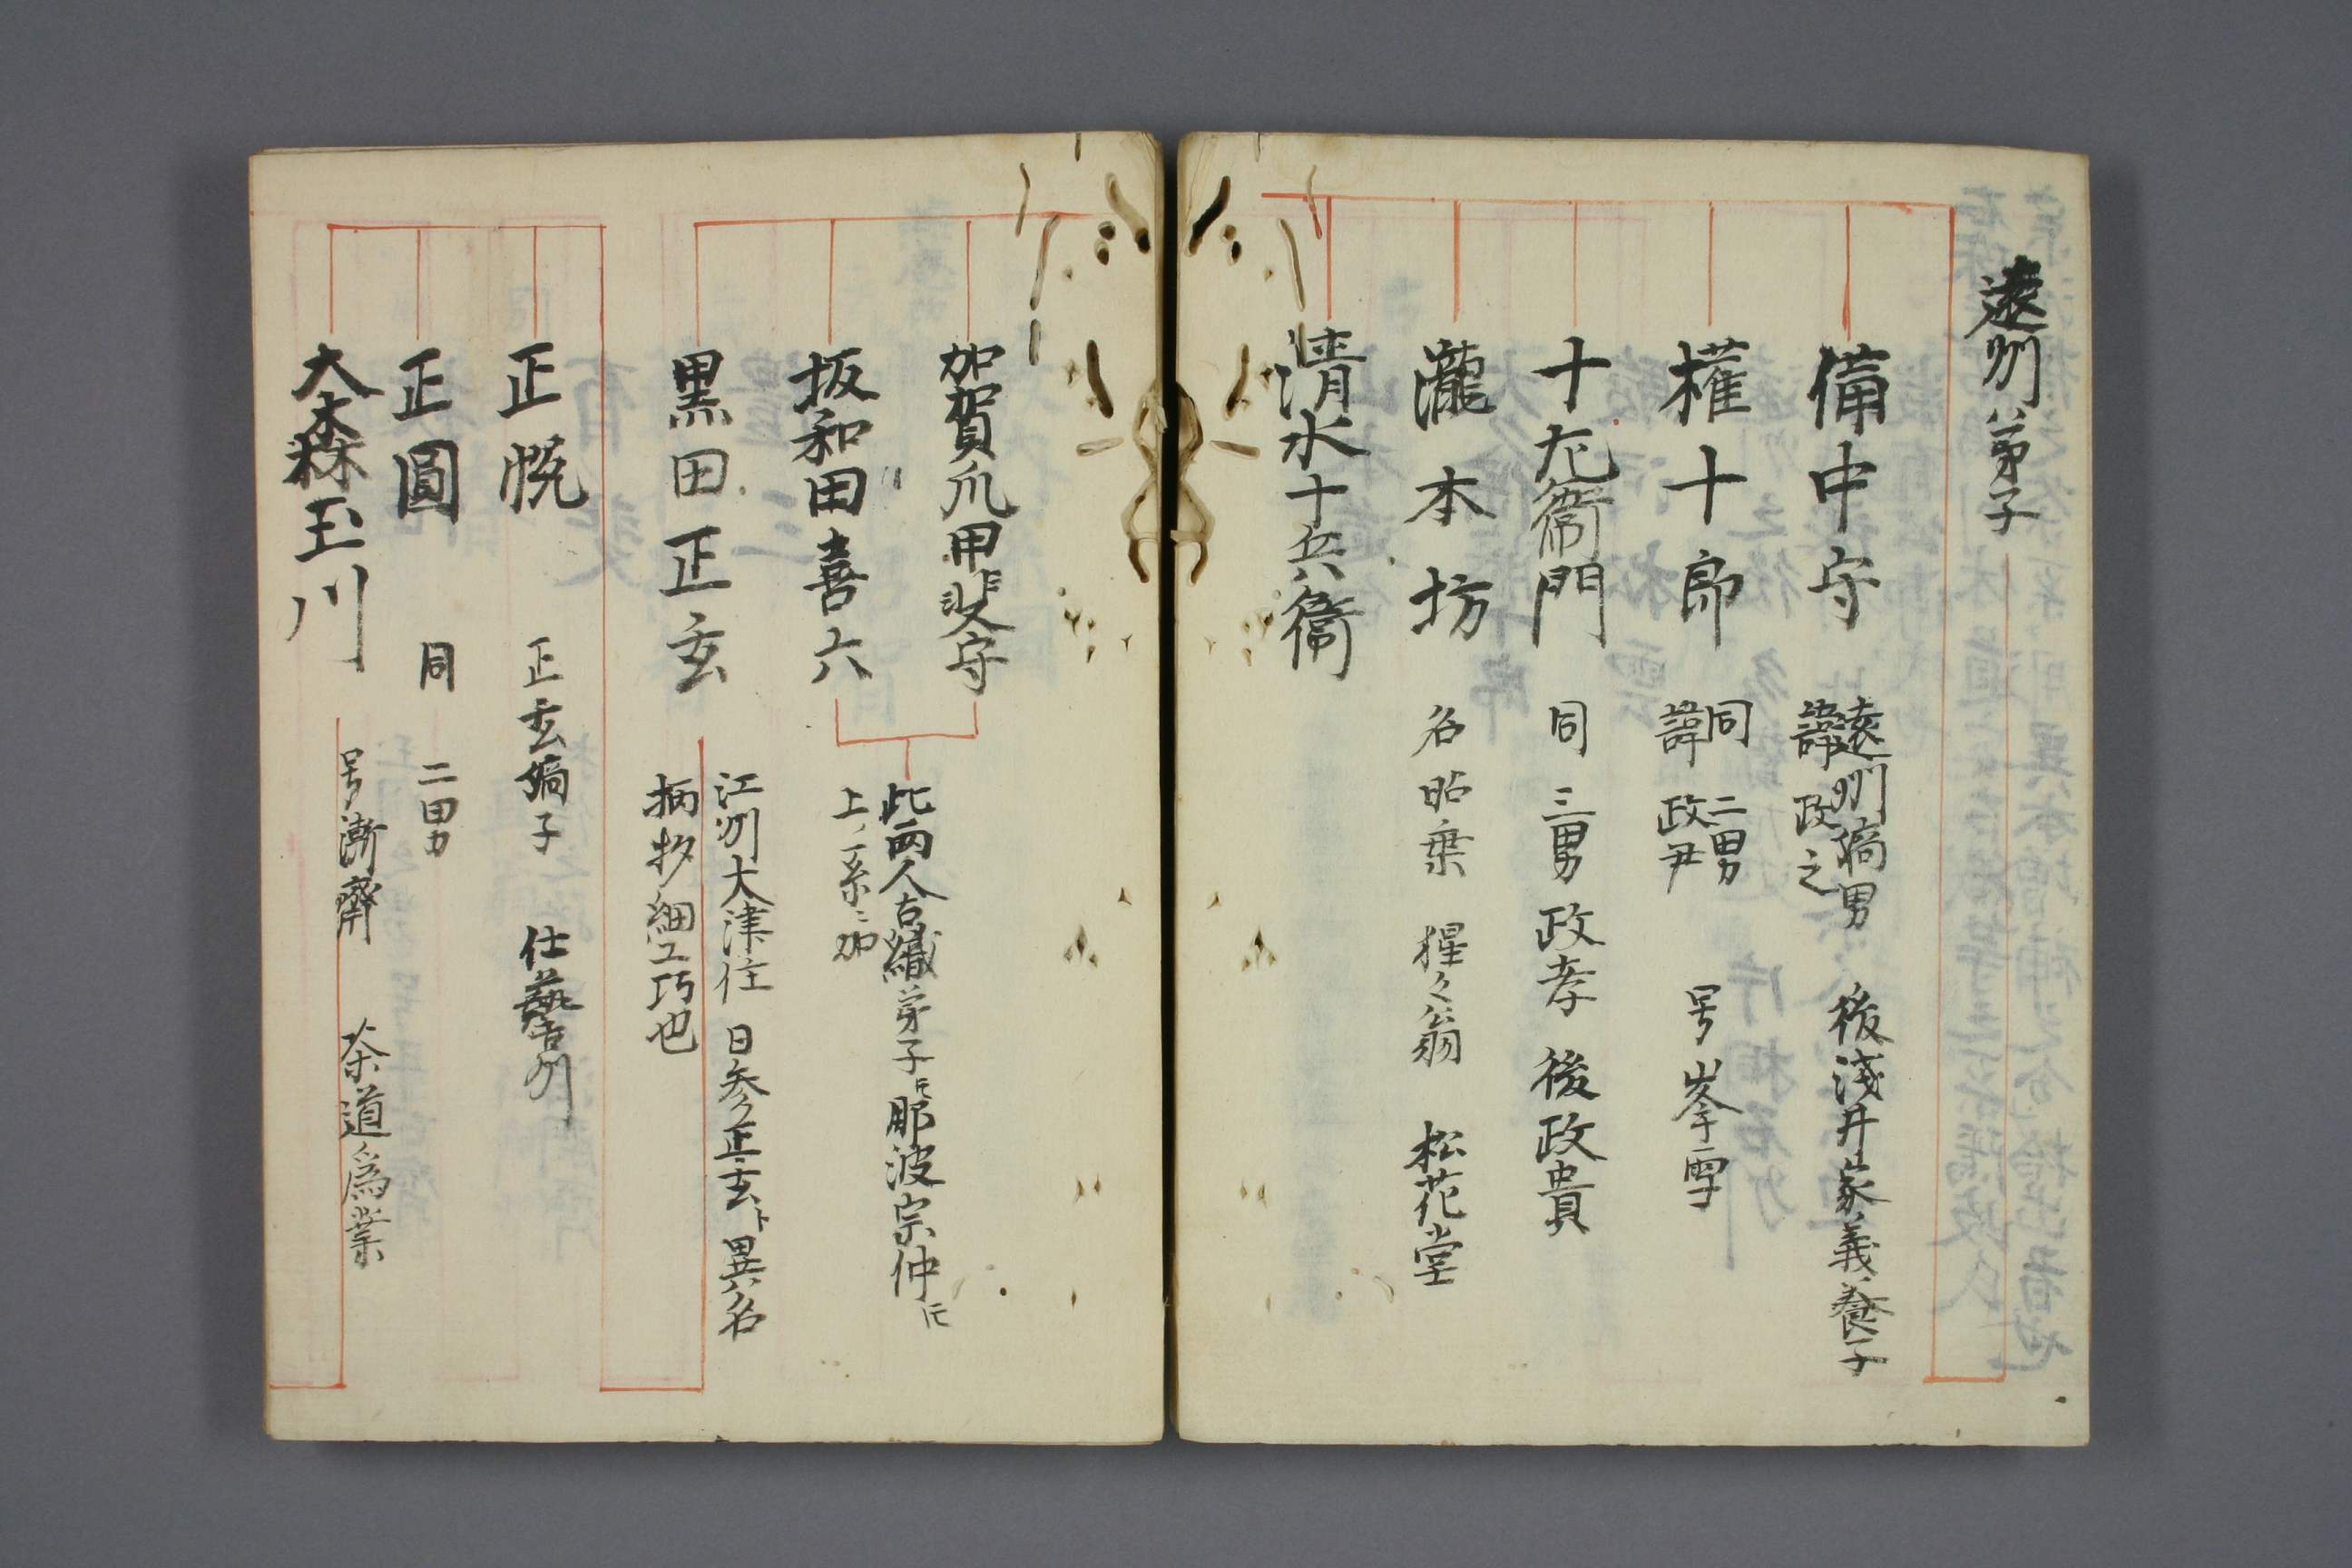 遠州弟子
備中守
遠州嫡男
諱政之
後淺井家義養子
権十郎
同二男
諱政尹
号峯雪
十左衛門
同三男政孝後政貴
瀧本坊
名昭乗
猩々翁
松花堂
清水十兵衛
加賀爪甲斐守
坂和田喜六
此両人古織弟子ニモ那波宗仲ニモ
上ノ系ニ加
黒田正玄
江州大津住日参正玄ト異名
柄杓細工巧也
正悦
正玄嫡子
仕藝州
正圓
同二男
大森玉川
号漸齋
茶道爲業